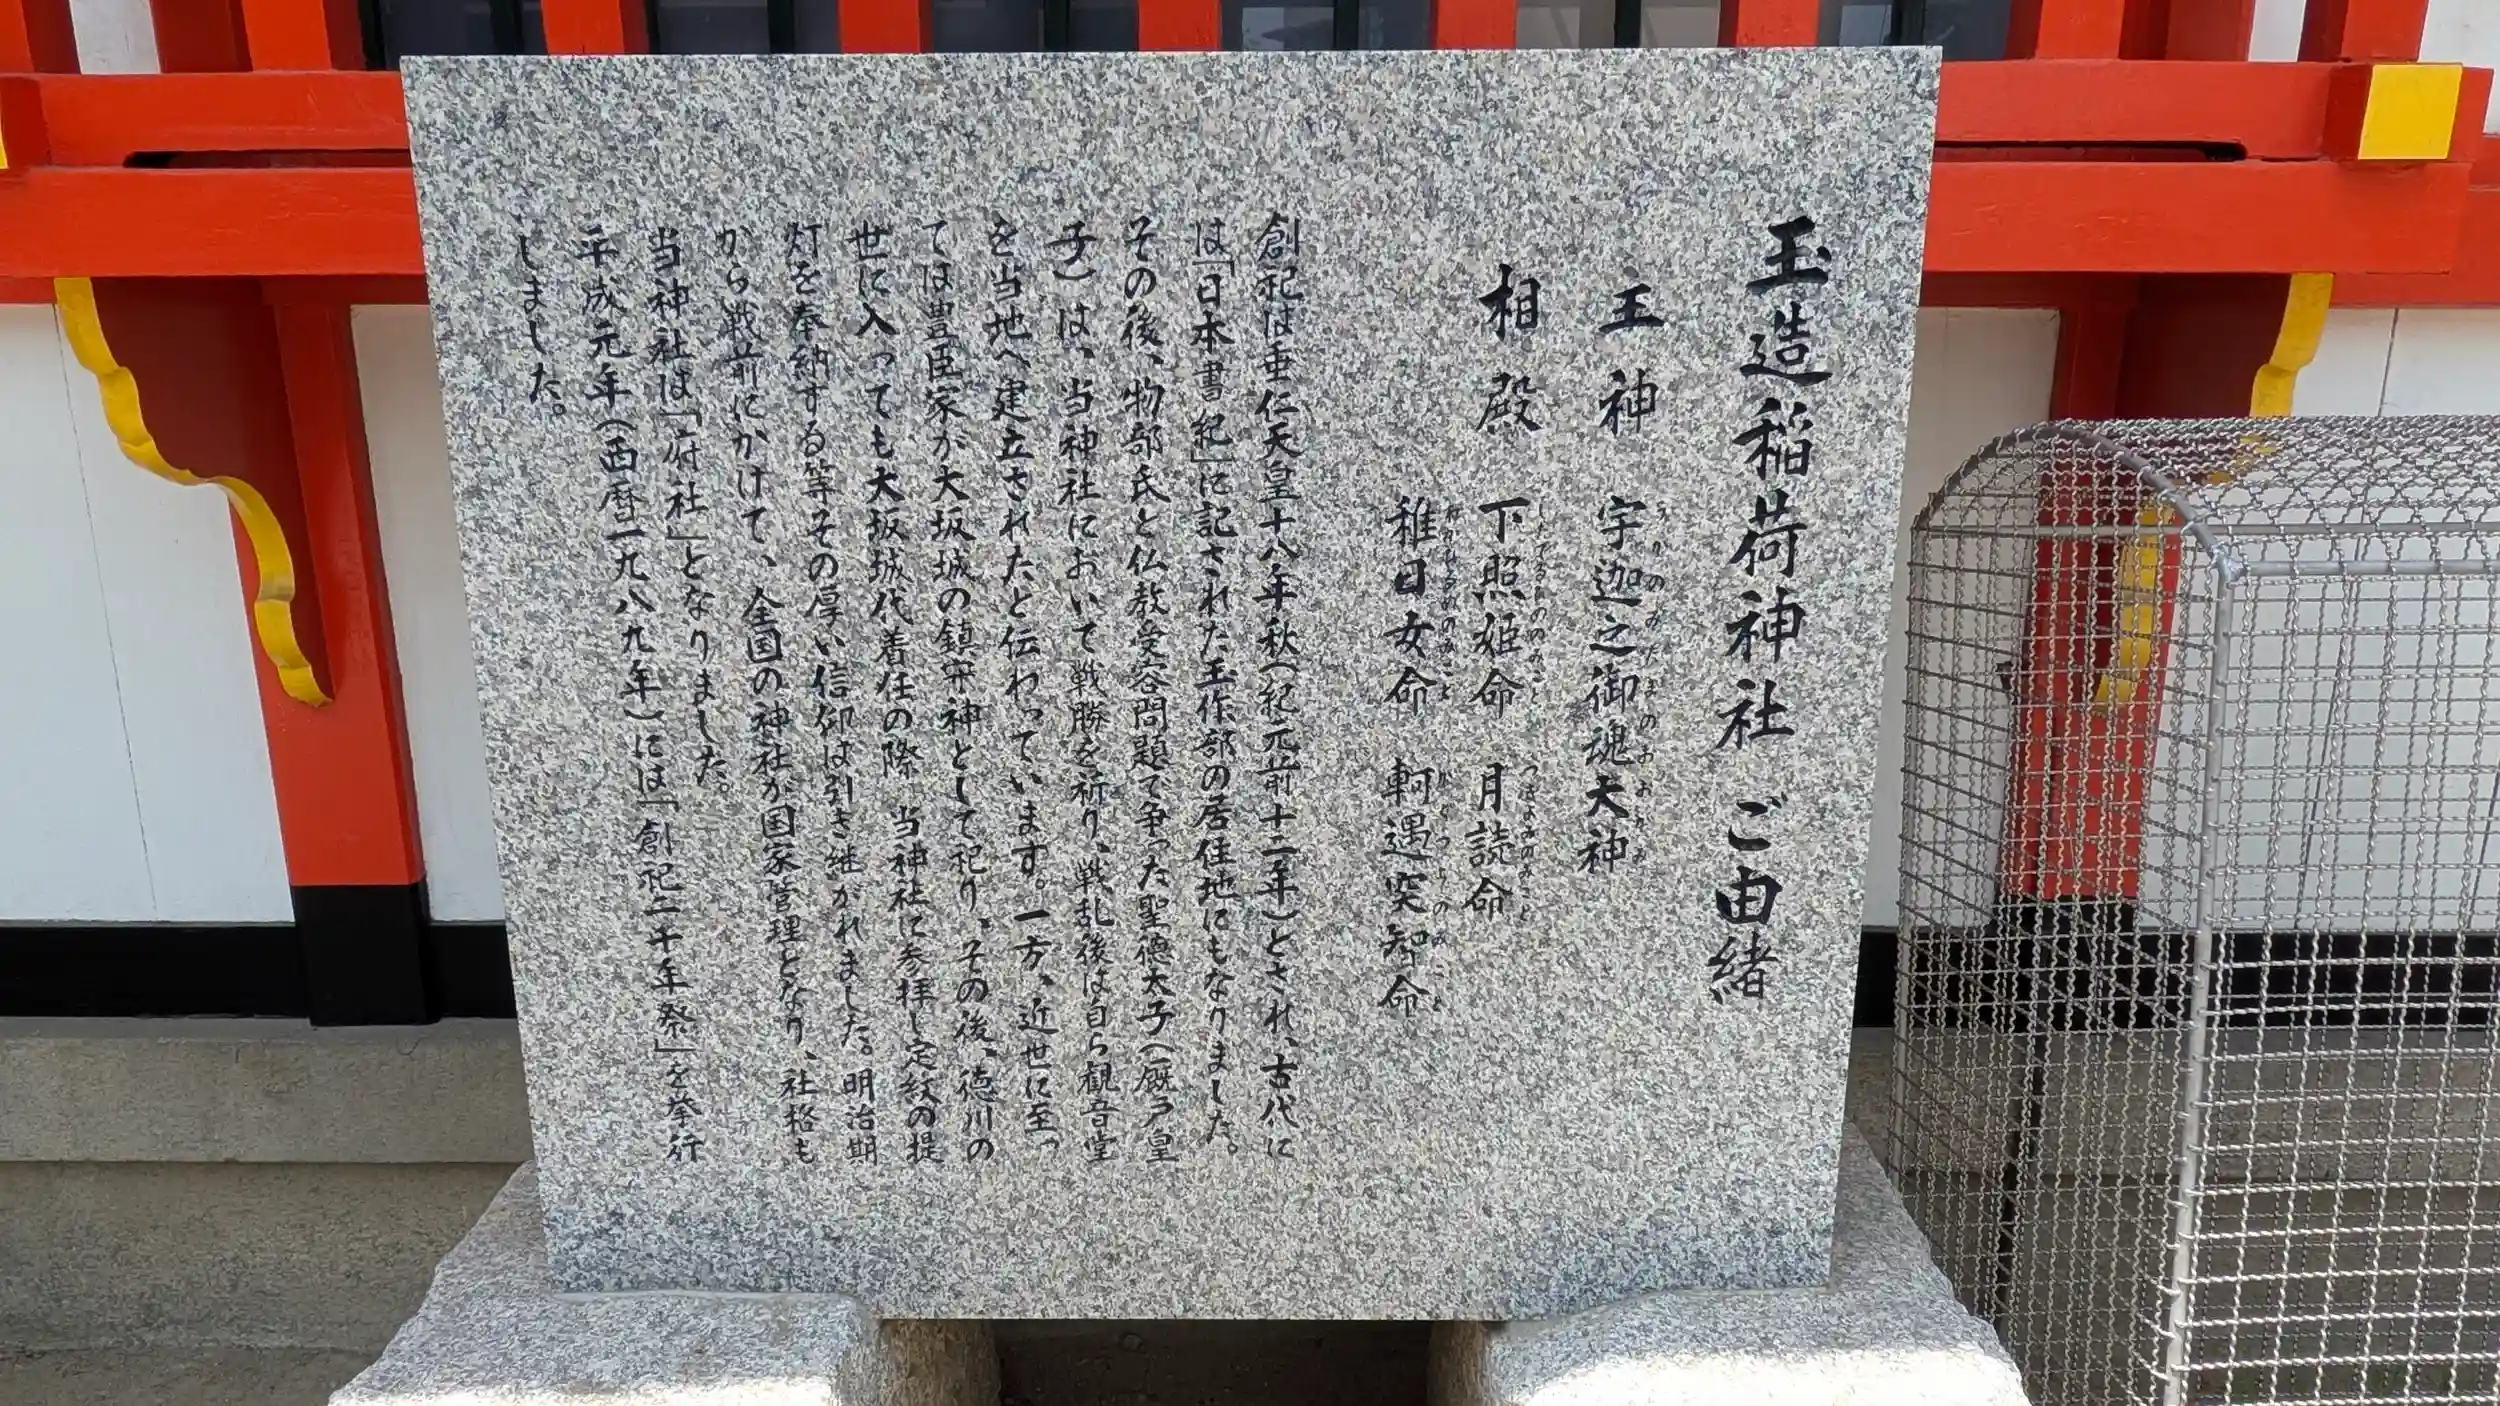 玉造稲荷神社ご由緒
主神　宇迦之御魂大神
うかのみたまのおおかみ
相殿　下照姫命　月読命
したてるひめのみこと　つきよみのみこと
稚日女命　軻遇突智命
わかひるめのみこと　かぐつちのみこと
創祀は垂仁天皇十八年秋（紀元前十二年）とされ、古代に
は「日本書紀」に記された玉作部の居住地にもなりました。
その後、物部氏と仏教受容問題で争った聖徳太子（厩戸皇
子）は、当神社において戦勝を祈り、戦乱後は自ら観音堂
を当地へ建立されたと伝わっています。一方、近世に至っ
ては豊臣家が大坂城の鎮守神として祀り、その後、徳川の
世に入っても大坂城代着任の際、当神社に参拝し定紋の提
灯を奉納する等その厚い信仰は引き継がれました。明治期
から戦前にかけて、全国の神社が国家管理となり、社格も
当神社は「府社」となりました。
平成元年（西暦一九八九年）には「創祀二千年祭」を挙行
しました。